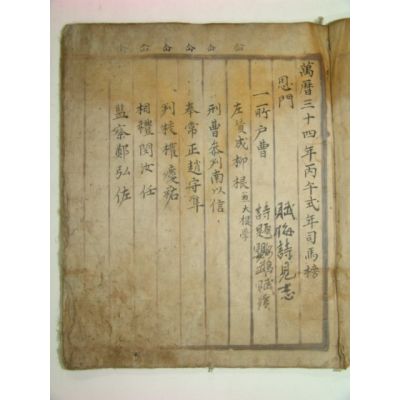 萬曆三十四年丙午式年司馬榜
恩門
賦梅詩見志
一所戶曹
詩題鸚鵡賦
左贊成柳根兼大提學
刑曹參判南以信
奉常正趙守準
判校權慶祐
相禮閔汝任
監察鄭弘佐